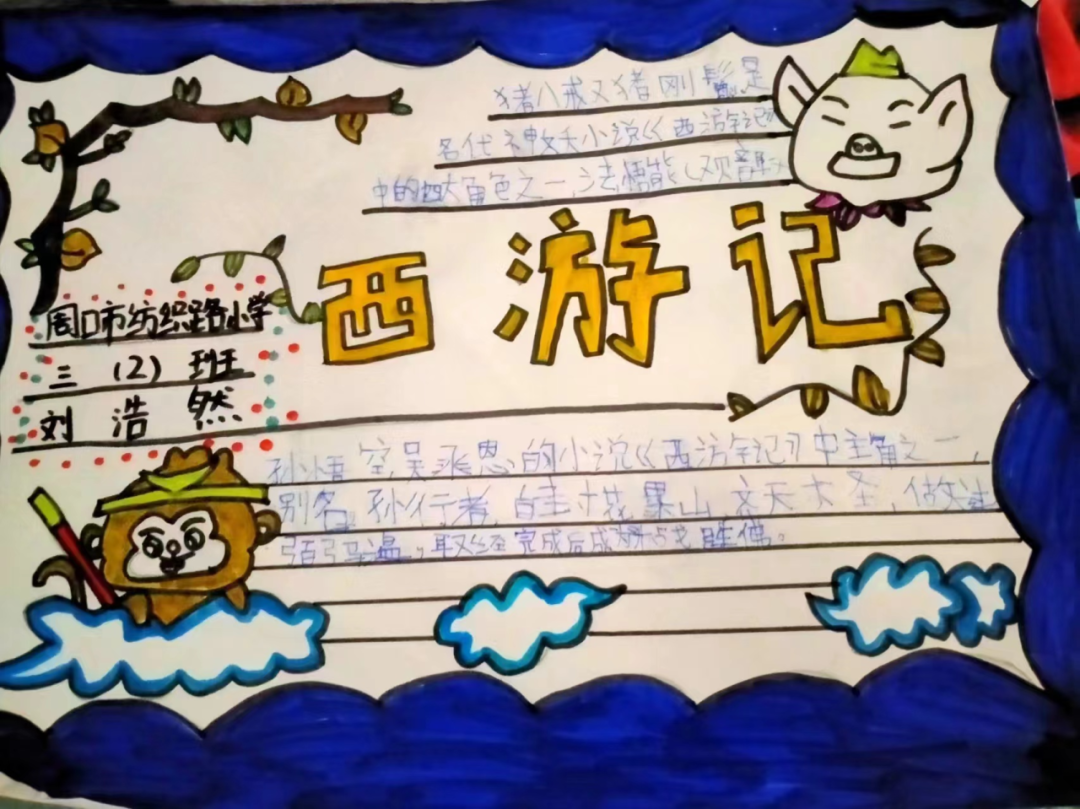 猪八戒又猪刚鬣是
名代神妖小说《西游记》
中的四大角色之一,法悟能(观音
西游记
周口市纺织路小学
三(2)班
刘浩然
孙悟空,吴承恩的小说《西游记》中主角之一,
别名,孙行者,花果山,齐天大圣,
弼马温。取经完成后成斗战胜佛。